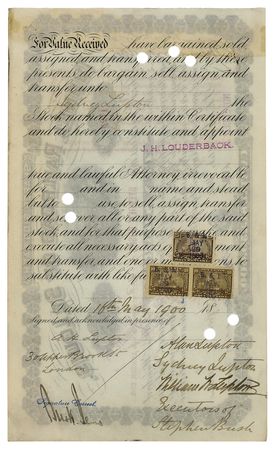 For Value Received have bargained, sold
assigned and transferred and by these
presents do bargain, sell, assign and
transfer unto
Sydney Lupton the
Stock named in the within Certificate
and do hereby constitute and appoint
J. H. LOUDERBACK.
true and lawful Attorney irrevocable
for and in name and stead
but to use to sell, assign, transfer
and over all or any part of the said
stock, and for that purpose
execute all necessary acts of
and transfer, and one or more persons to
substitute with like
Dated 16th May 1900 18
Signed and acknowledged in presence of
Lupton
Brook St
London
Alan Lupton
Sydney Lupton
William Lupton
Executors of
Stephen Bush